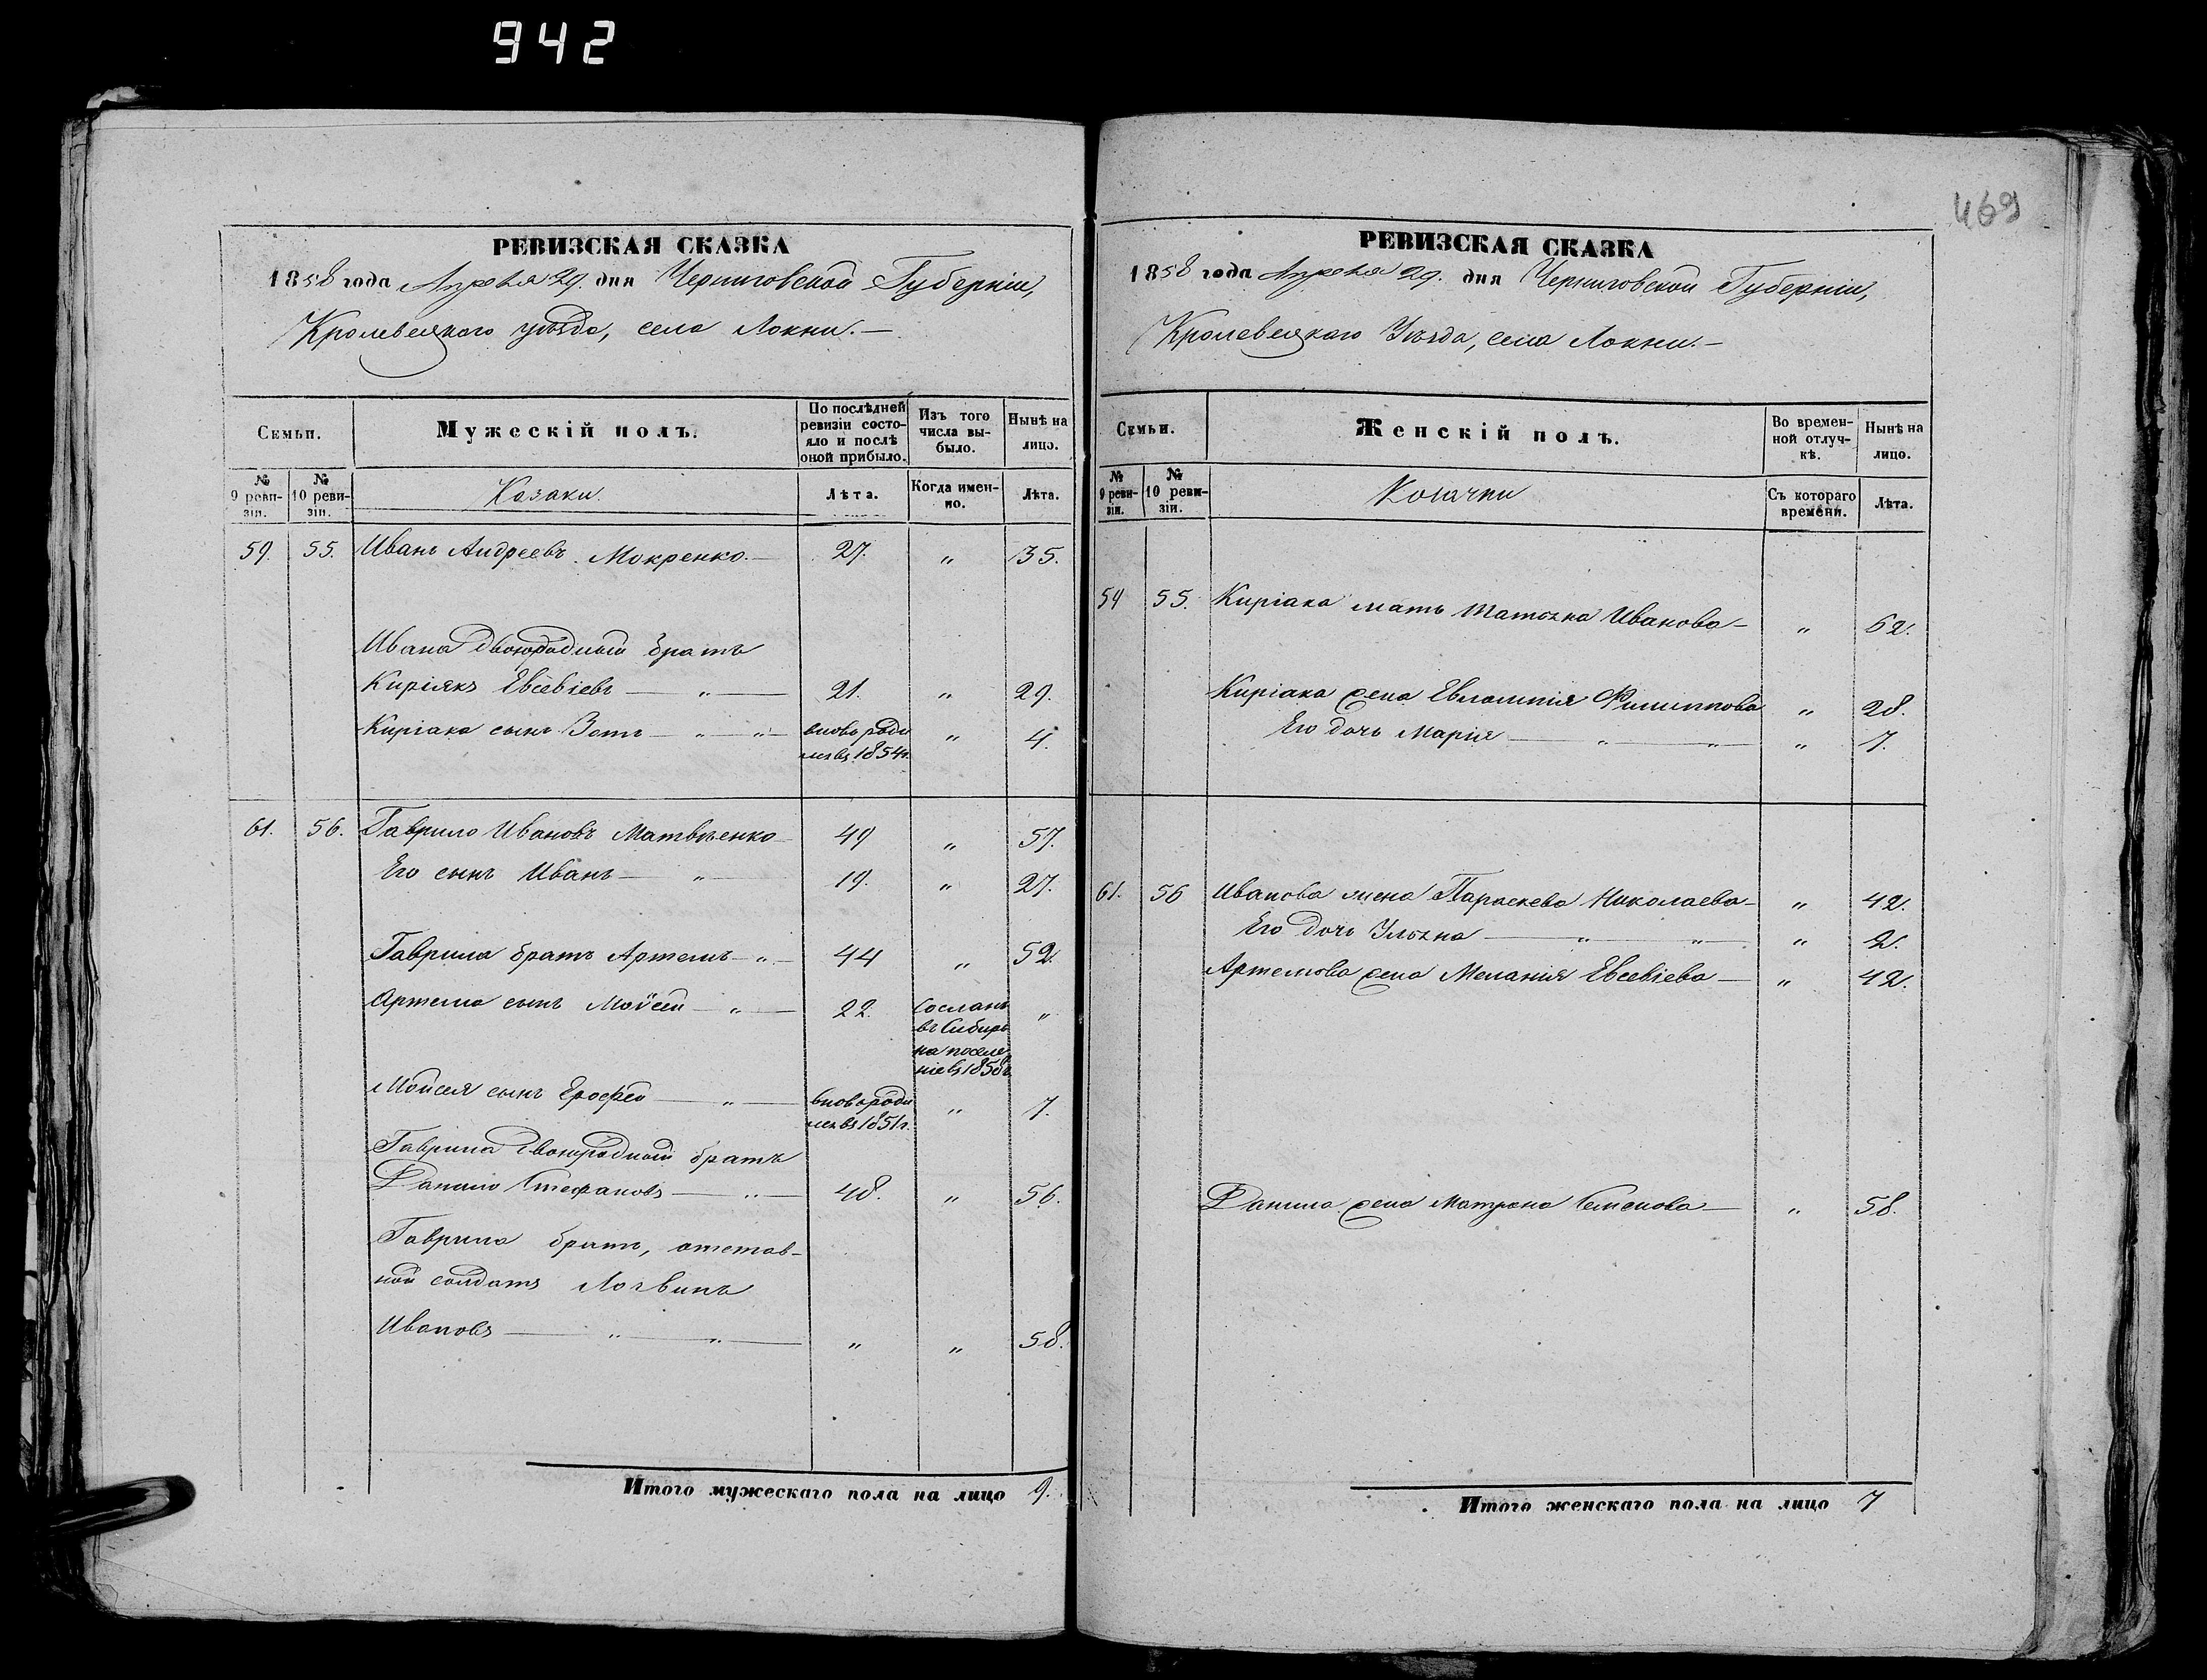 942
469
РЕВИЗСКАЯ СКАЗКА
1858 года Апреля 29. дня Черниговской Губерніи,
Кролевецкаго уѣзда, села Локни.—
Семьи.
Мужескій полъ.
По послѣдней ревизіи состояло и послѣ оной прибыло.
Изъ того числа выбыло.
Нынѣ на лицо.
№ 9 ревизіи.
№ 10 ревизіи.
Козаки.
Лѣта.
Когда именно.
Лѣта.
59. 55. Иванъ Андреевъ Мокренко.— 27. „ 35.
Ивана двоюродный братъ
Киріякъ Евсевіевъ — „ — 21. „ 29.
Киріака сынъ Зотъ — „ — „ — вновь родился въ 1854 г. „ 4.
61. 56. Гаврило Ивановъ Матвѣенко — 49 „ 57.
Его сынъ Иванъ — „ — 19. „ 27.
Гаврила братъ Артемъ — „ — 44 „ 52.
Артема сынъ Мойсей — „ — 22. Сосланъ „
въ Сибирь
на поселе
ніе въ 1850 г.
Мойсея сынъ Ерофей — „ — вновь родился въ 1851 г. „ 7.
Гаврила двоюродный братъ
Данило Стефановъ — „ — 48. „ 56.
Гаврила братъ, отстав-
ной солдатъ Логвинъ
Ивановъ — „ — „ — „ „ 58.
Итого мужескаго пола на лицо 9.
РЕВИЗСКАЯ СКАЗКА
1858 года Апреля 29. дня Черниговской Губерніи,
Кролевецкаго Уѣзда, села Локни.—
Семьи.
Женскій полъ.
Во временной отлучкѣ.
Нынѣ на лицо.
№ 9 ревизіи.
№ 10 ревизіи.
Козачки
Съ котораго времени.
Лѣта.
59 55. Киріака мать Татьяна Иванова — „ 62.
Киріака жена Евлампія Филиппова „ 28.
Его дочь Марія — „ — „ — „ 7.
61. 56 Иванова жена Параскева Николаева — „ 42.
Его дочь Ульяна — „ — „ — „ 2.
Артемова жена Меланія Евсевіева — „ 42.
Данила жена Матрона Семенова — „ 58.
Итого женскаго пола на лицо 7